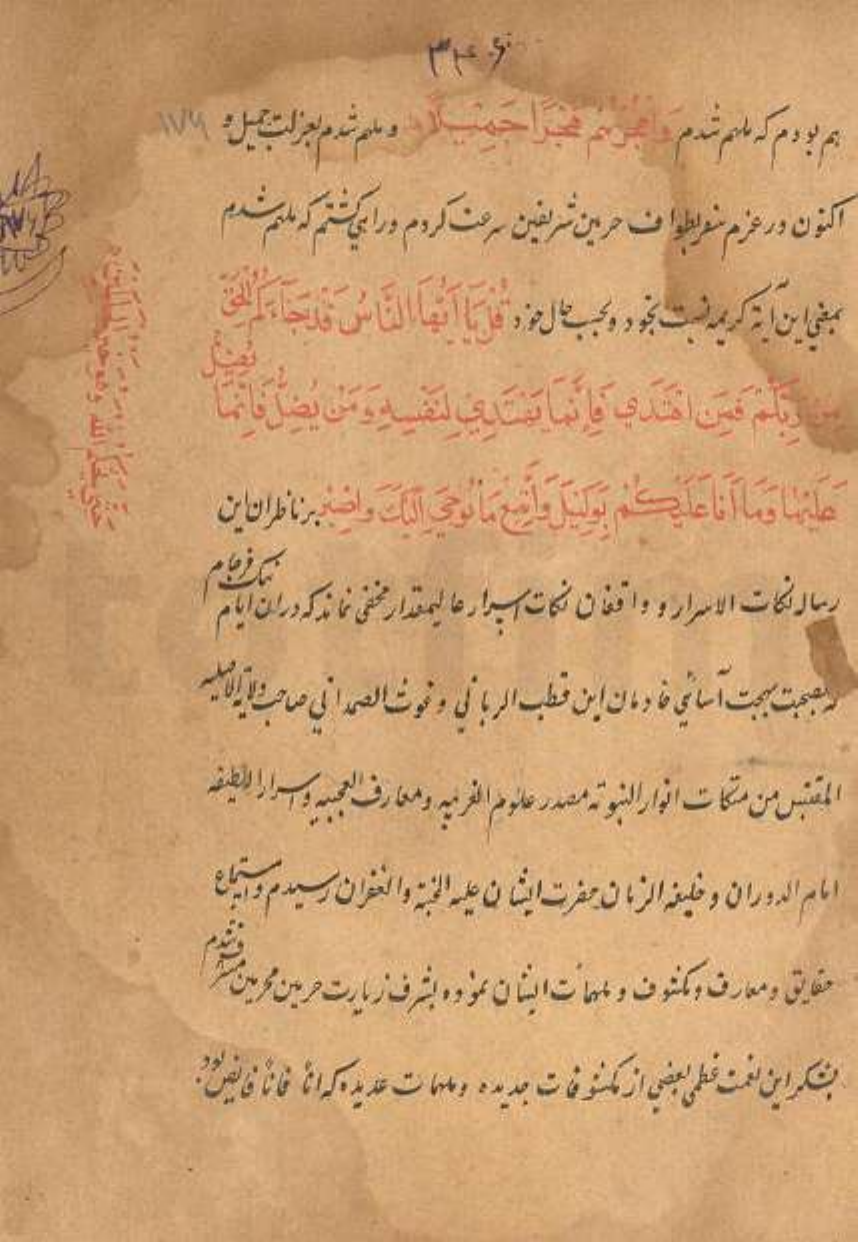 ۳۴۶
۱۱۷۶
هم بودم که ملهم شدم وَاهْجُرْهُمْ هَجْرًا جَمِيلًا و ملهم شدم بعزلت جمیل و
اکنون در عزم سفر بطواف حرمین شریفین سرعت کردم و راهی گشتم که ملهم شدم
بمعنی این آیة کریمه نسبت بخود و بحسب حال خود قُلْ يَا أَيُّهَا النَّاسُ قَدْ جَاءَكُمُ الْحَقُّ
مِنْ رَبِّكُمْ فَمَنِ اهْتَدَي فَإِنَّمَا يَهْتَدِي لِنَفْسِهِ وَمَنْ يُضِلُّ فَإِنَّمَا يَضِلُّ
عَلَيْهَا وَمَا أَنَا عَلَيْكُمْ بِوَكِيلٍ وَاتَّبِعْ مَا يُوحَي إِلَيْكَ وَاصْبِرْ بر ناظران این
رساله نکات الاسرار و واقفان نکات اسرار عالیمقدار مخفی نماند که دران ایام نیک فرجام
که بصحبت بهجت آسائی خادمان این قطب الربانی و غوث الصمدانی صاحب ولایة الاصلیه
المقتبس من مشکات انوار النبوته مصدر علوم الغریبه و معارف العجیبه و اسرار اللطیفه
امام الدوران و خلیفه الزمان حضرت ایشان علیه والغفران رسیدم و استماع
حقایق و معارف و مکشوف و ملهمات ایشان نموده بشرف زیارت حرمین محرمین مشرف شدم
بشکر این نعمت عظمی بعضی از مکشوفات جدیده و ملهمات عدیده که اناً فاناً فایض بود